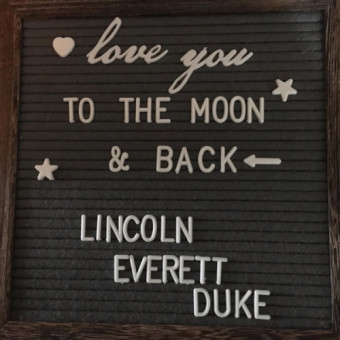 love you
TO THE MOON
& BACK
LINCOLN
EVERETT
DUKE